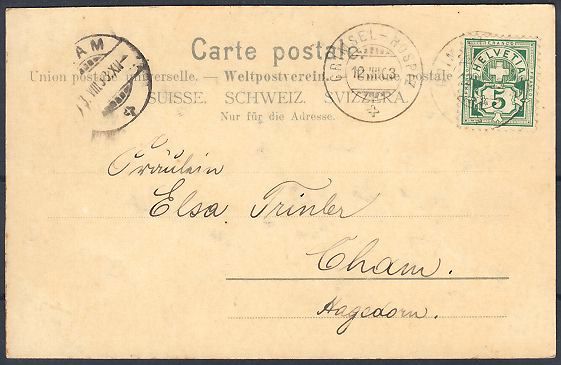 Carte postale.
Union postale universelle. — Weltpostverein. — Unione postale
SUISSE. SCHWEIZ. SVIZZERA.
Nur für die Adresse.
GRIMSEL-HOSPIZ
12.VIII.03
HELVETIA
FRANCO
5
Fräulein
Elsa Trinler
Cham.
Hagedorn.